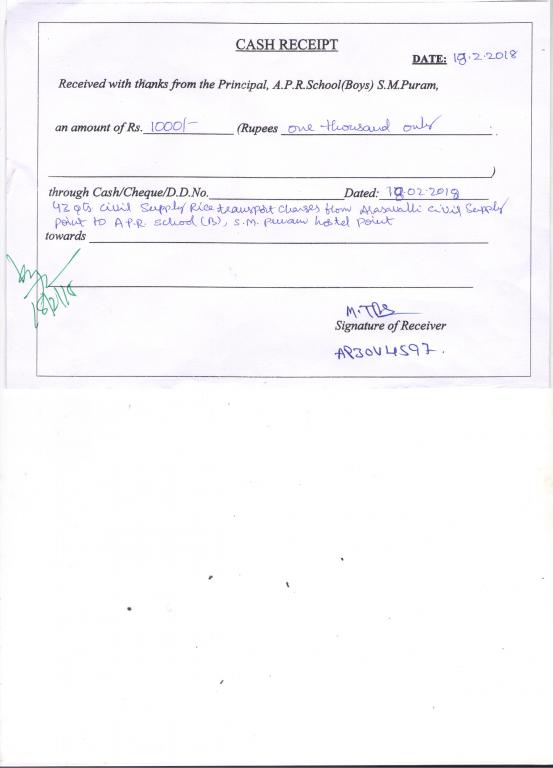 CASH RECEIPT
DATE: 18.2.2018
Received with thanks from the Principal, A.P.R.School(Boys) S.M.Puram,
an amount of Rs. 1000/- (Rupees one thousand only
)
through Cash/Cheque/D.D.No. Dated: 18.02.2018
42 qts civil Supply Rice transport charges from Arasavalli civil Supply
point to A.P.R. School (B), S.M. Puram hostel point
towards
18/2/18
M.
Signature of Receiver
AP30V4597.